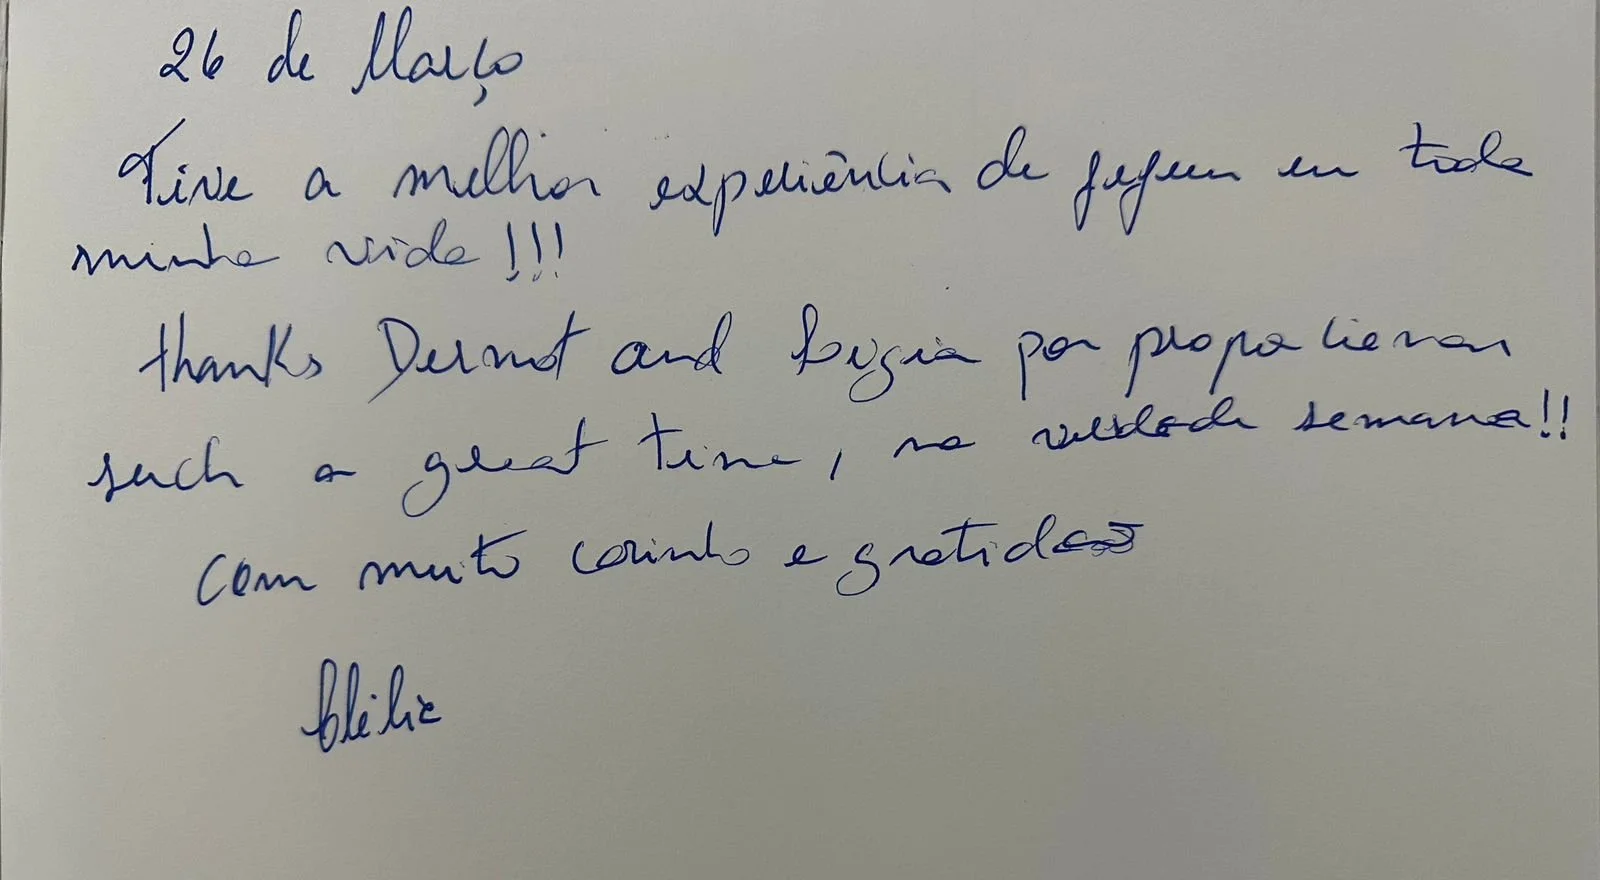 26 de Março
Tive a melhor experiência de jejum em toda
minha vida!!!
thanks Dermot and Ligia por proporcionar
such a great time, na verdade semana!!
com muito carinho e gratidão
Clélia